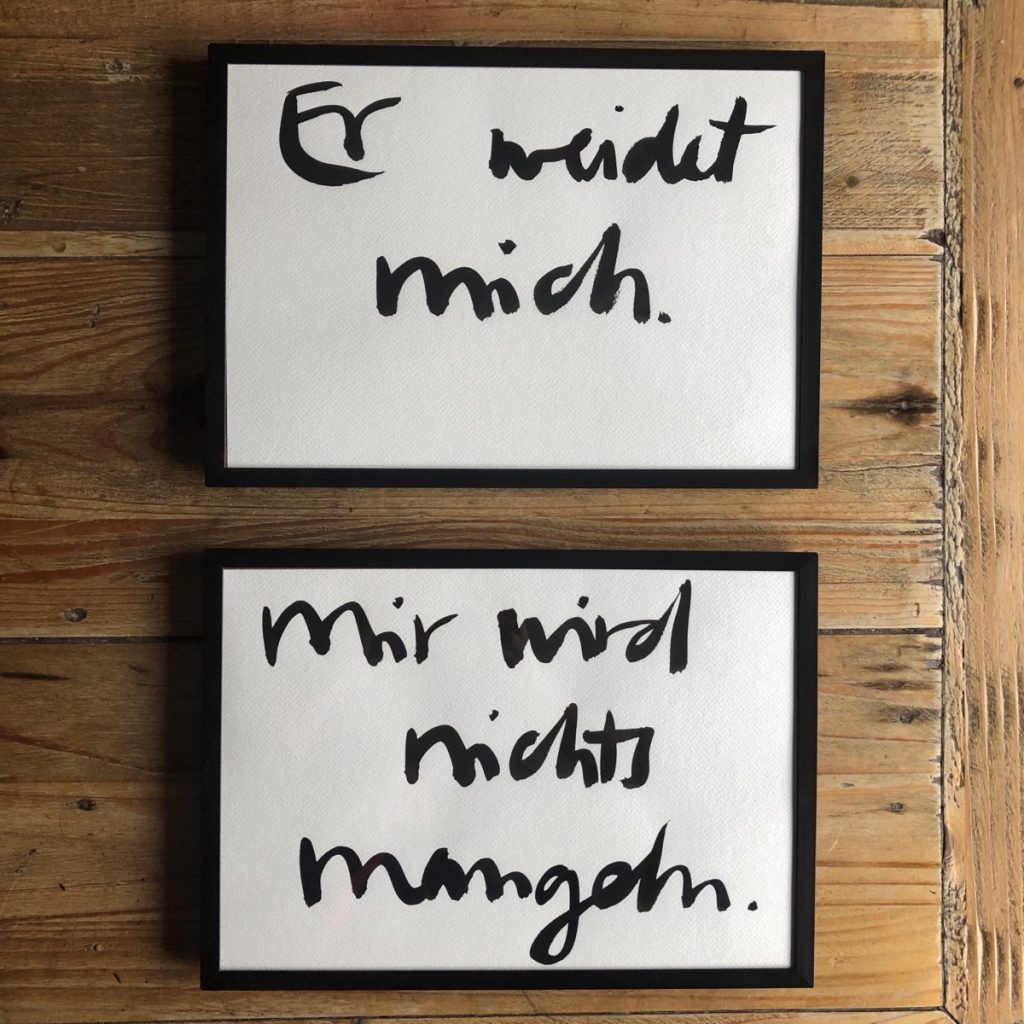 Er weidet
mich.
Mir wird
nichts
mangeln.